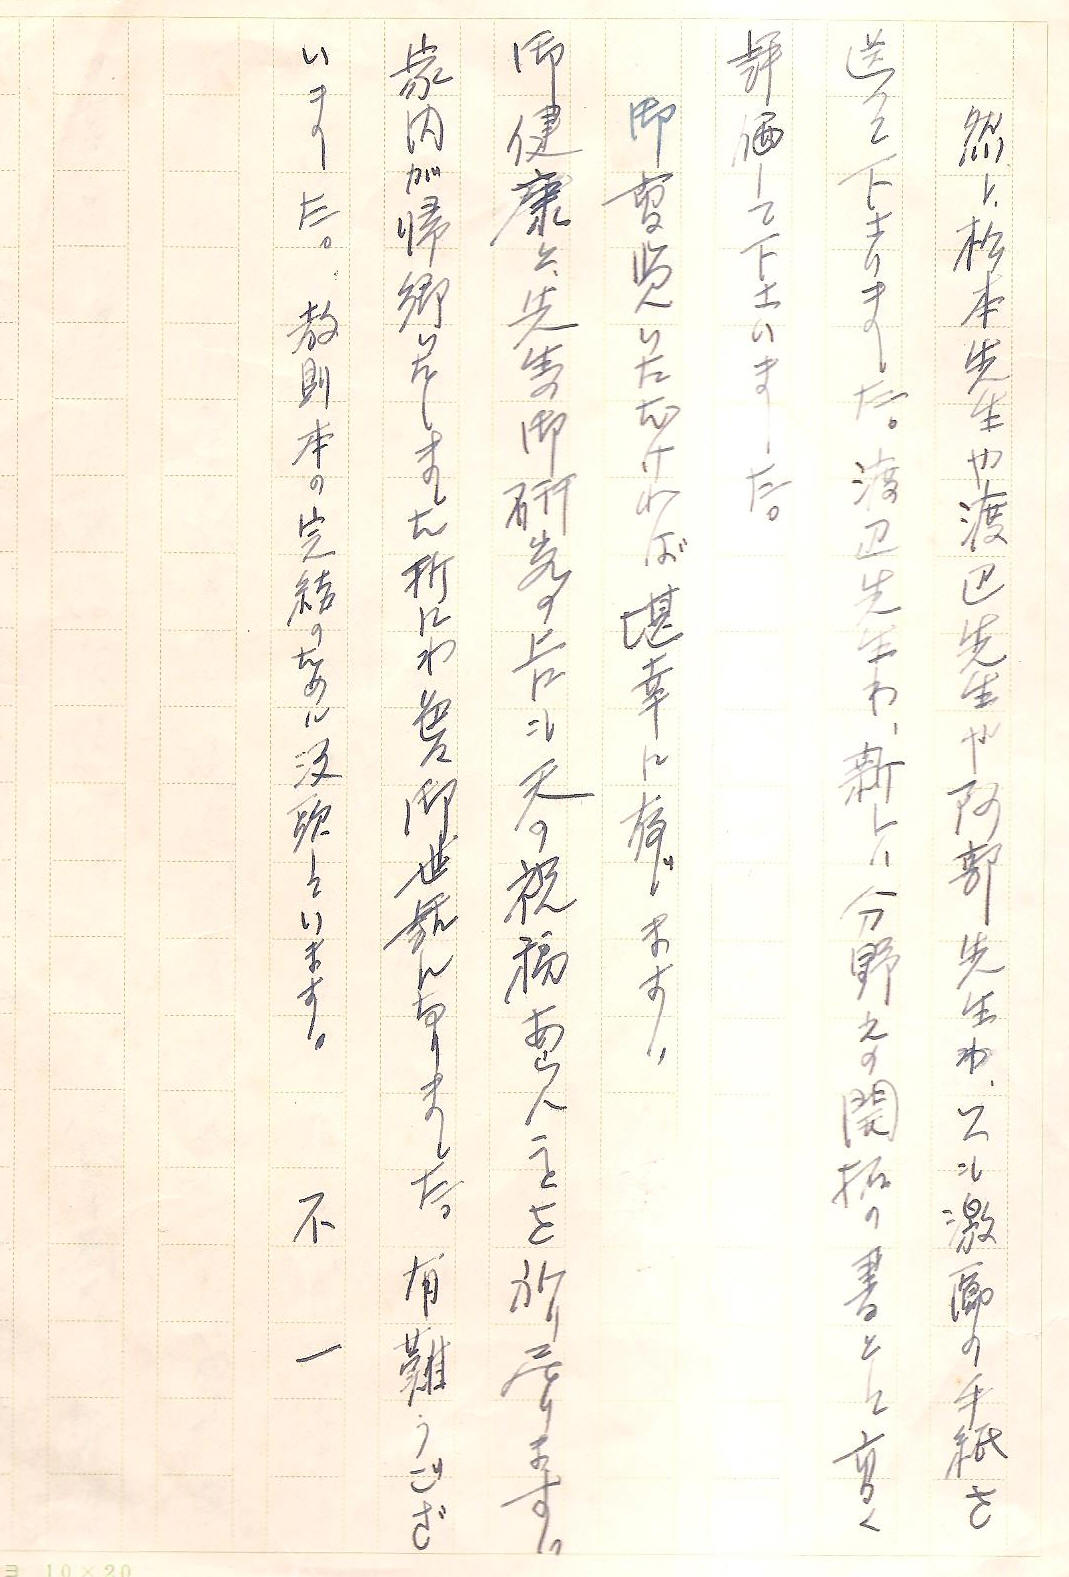 然し、松本先生や渡辺先生や阿部先生わ、いつも激励の手紙を
送って下さりました。渡辺先生わ、新しい分野えの開拓の書として高く
評価して下さいました。
御高覧いただければ甚幸に存じます。
御健康と、先生の御研究の上にも天の祝福あらんことを祈り居ります。
家内が帰郷いたしました折にわ色々御世話になりました。有難うござ
いました。教則本の完結のために没頭しています。 不 一
ヨ 10×20